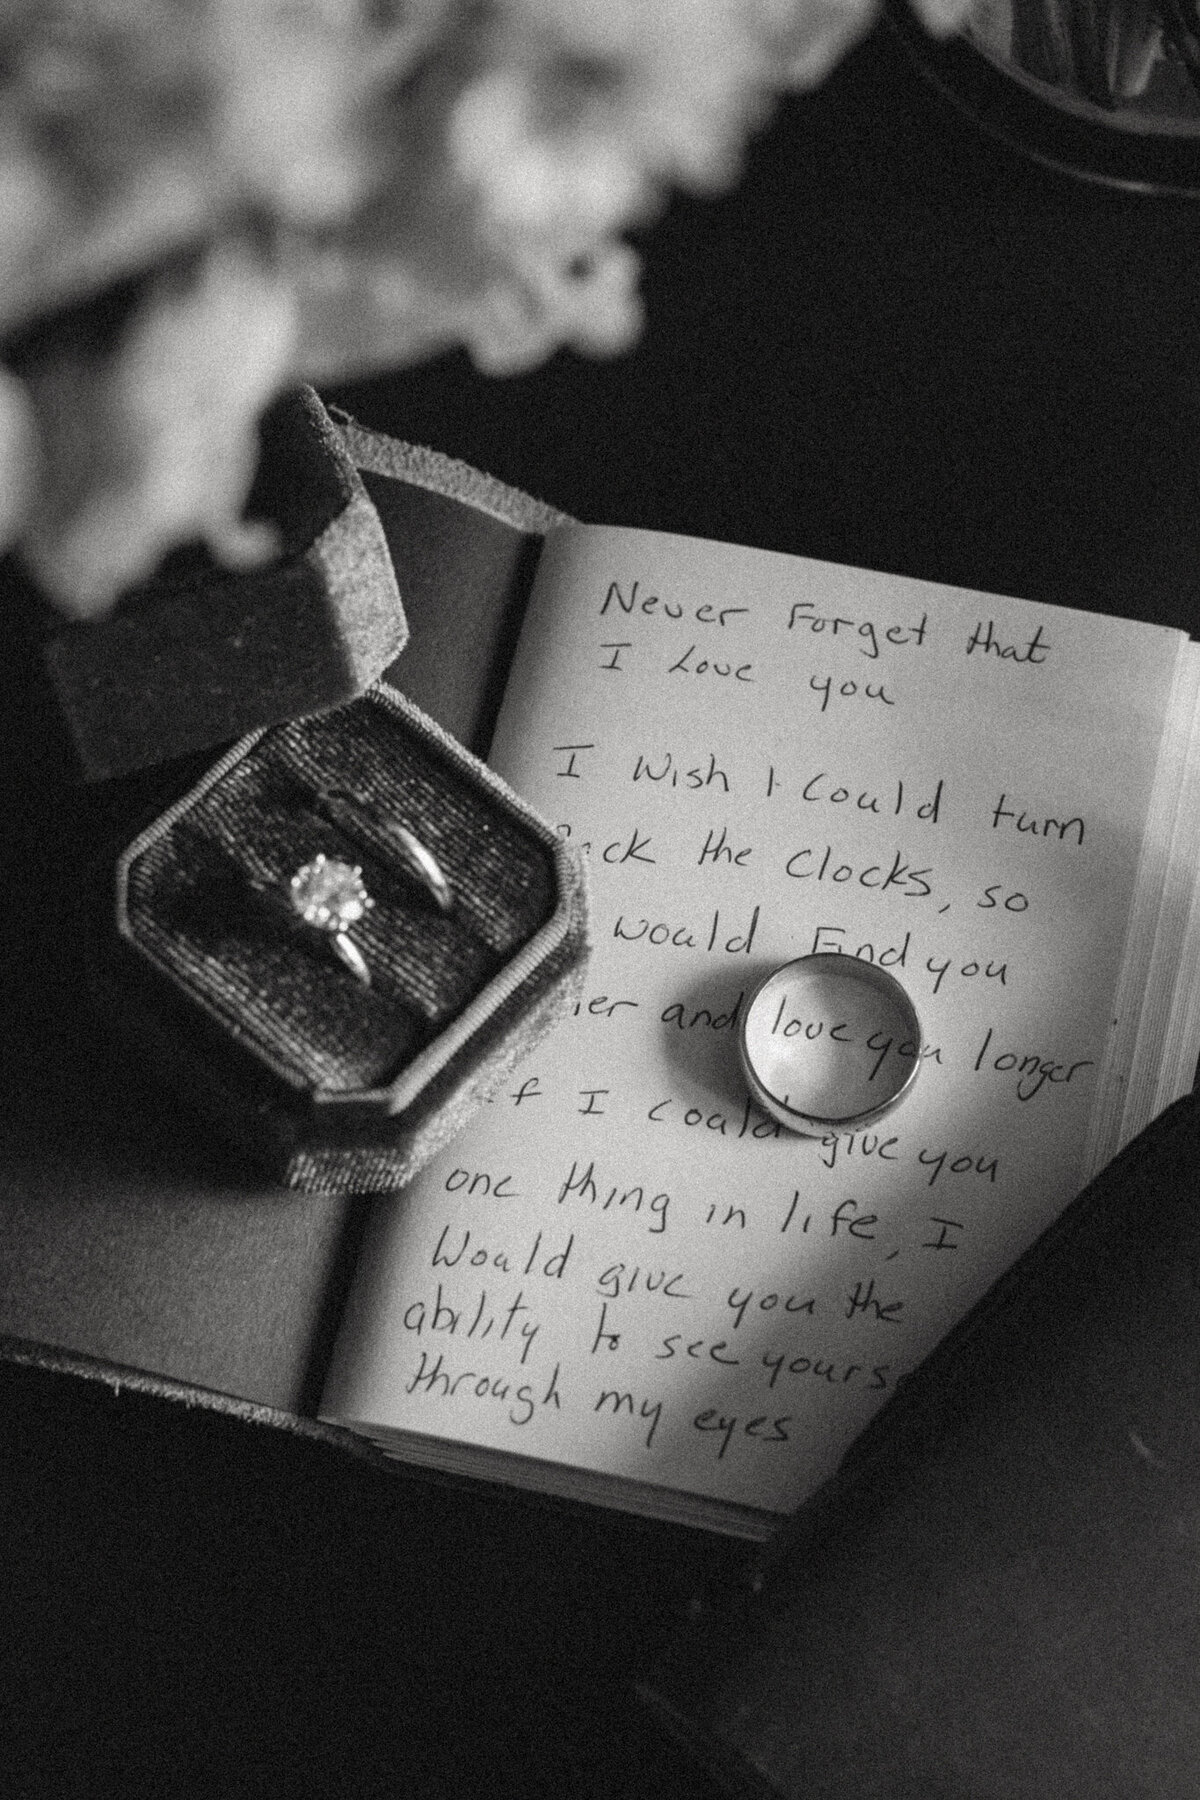 Never Forget that
I Love you
I Wish I Could turn
ck the Clocks, so
would Find you
ier and love you longer
f I could give you
one thing in life, I
Would give you the
ability to see yours
through my eyes